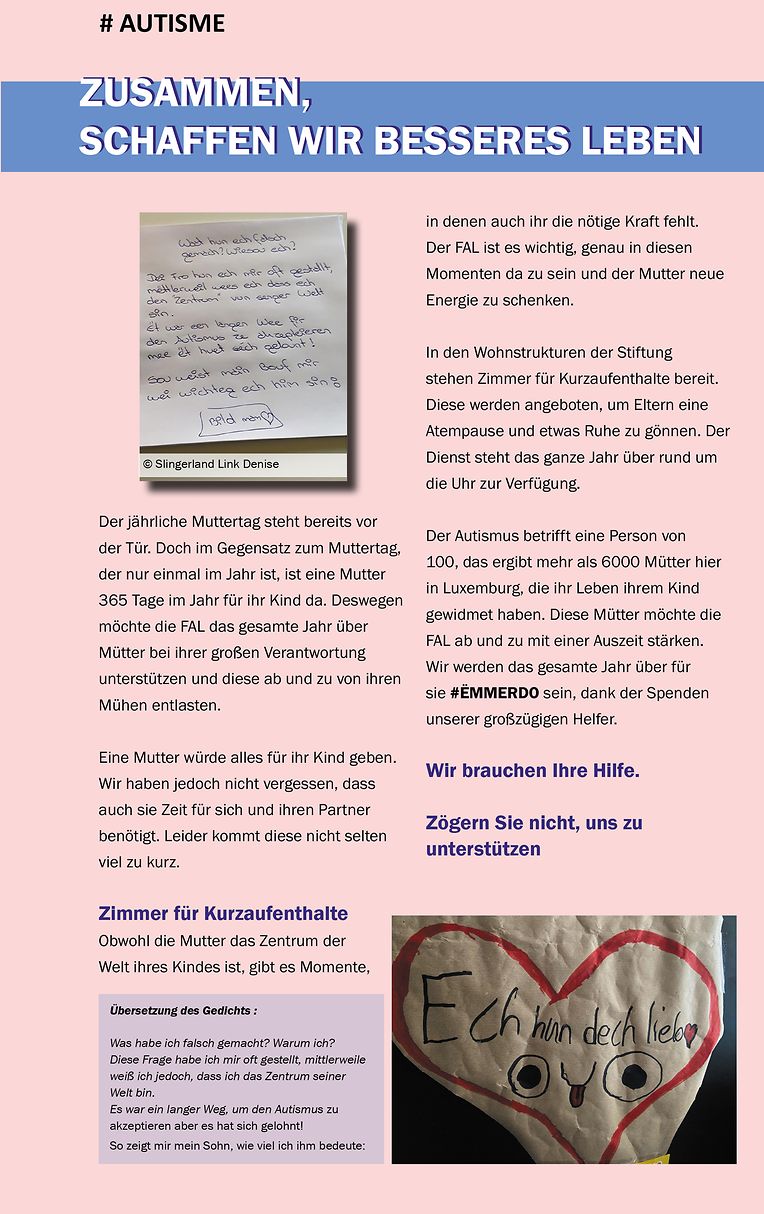 # AUTISME
ZUSAMMEN,
SCHAFFEN WIR BESSERES LEBEN
Wat hun ech falsch
gemach? Wiesou ech?
Fro hun ech mir oft gestallt,
mëttlerweil wees ech dass ech
den "Zentrum" vun senger Welt
sin.
Ët war een langen Wee fir
den Autismus ze akzeptéieren
mee ët huet sech gelount!
Sou weist mein Bouf mir
wei wichteg ech him sin:
Bild
© Slingerland Link Denise
Der jährliche Muttertag steht bereits vor
der Tür. Doch im Gegensatz zum Muttertag,
der nur einmal im Jahr ist, ist eine Mutter
365 Tage im Jahr für ihr Kind da. Deswegen
möchte die FAL das gesamte Jahr über
Mütter bei ihrer großen Verantwortung
unterstützen und diese ab und zu von ihren
Mühen entlasten.
Eine Mutter würde alles für ihr Kind geben.
Wir haben jedoch nicht vergessen, dass
auch sie Zeit für sich und ihren Partner
benötigt. Leider kommt diese nicht selten
viel zu kurz.
Zimmer für Kurzaufenthalte
Obwohl die Mutter das Zentrum der
Welt ihres Kindes ist, gibt es Momente,
in denen auch ihr die nötige Kraft fehlt.
Der FAL ist es wichtig, genau in diesen
Momenten da zu sein und der Mutter neue
Energie zu schenken.
In den Wohnstrukturen der Stiftung
stehen Zimmer für Kurzaufenthalte bereit.
Diese werden angeboten, um Eltern eine
Atempause und etwas Ruhe zu gönnen. Der
Dienst steht das ganze Jahr über rund um
die Uhr zur Verfügung.
Der Autismus betrifft eine Person von
100, das ergibt mehr als 6000 Mütter hier
in Luxemburg, die ihr Leben ihrem Kind
gewidmet haben. Diese Mütter möchte die
FAL ab und zu mit einer Auszeit stärken.
Wir werden das gesamte Jahr über für
sie #ËMMERDO sein, dank der Spenden
unserer großzügigen Helfer.
Wir brauchen Ihre Hilfe.
Zögern Sie nicht, uns zu
unterstützen
Übersetzung des Gedichts :
Was habe ich falsch gemacht? Warum ich?
Diese Frage habe ich mir oft gestellt, mittlerweile
weiß ich jedoch, dass ich das Zentrum seiner
Welt bin.
Es war ein langer Weg, um den Autismus zu
akzeptieren aber es hat sich gelohnt!
So zeigt mir mein Sohn, wie viel ich ihm bedeute:
Ech hun dech lieb